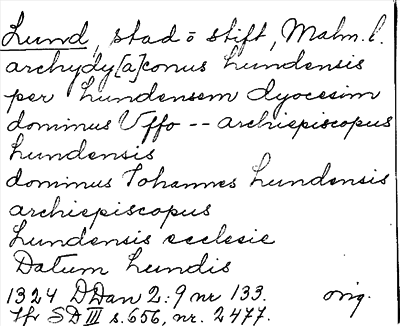 Lund, stad o stift, Malm. l.
archydy[a]conus Lundensis
per Lundensem dyocesim
dominus Vffo -- archiepiscopus
Lundensis
dominus Johannes Lundensis
archiepiscopus
Lundensis ecclesie
Datum Lundis
1324 DDan 2:9 nr 133. orig.
Jfr SD III s. 656, nr. 2477.